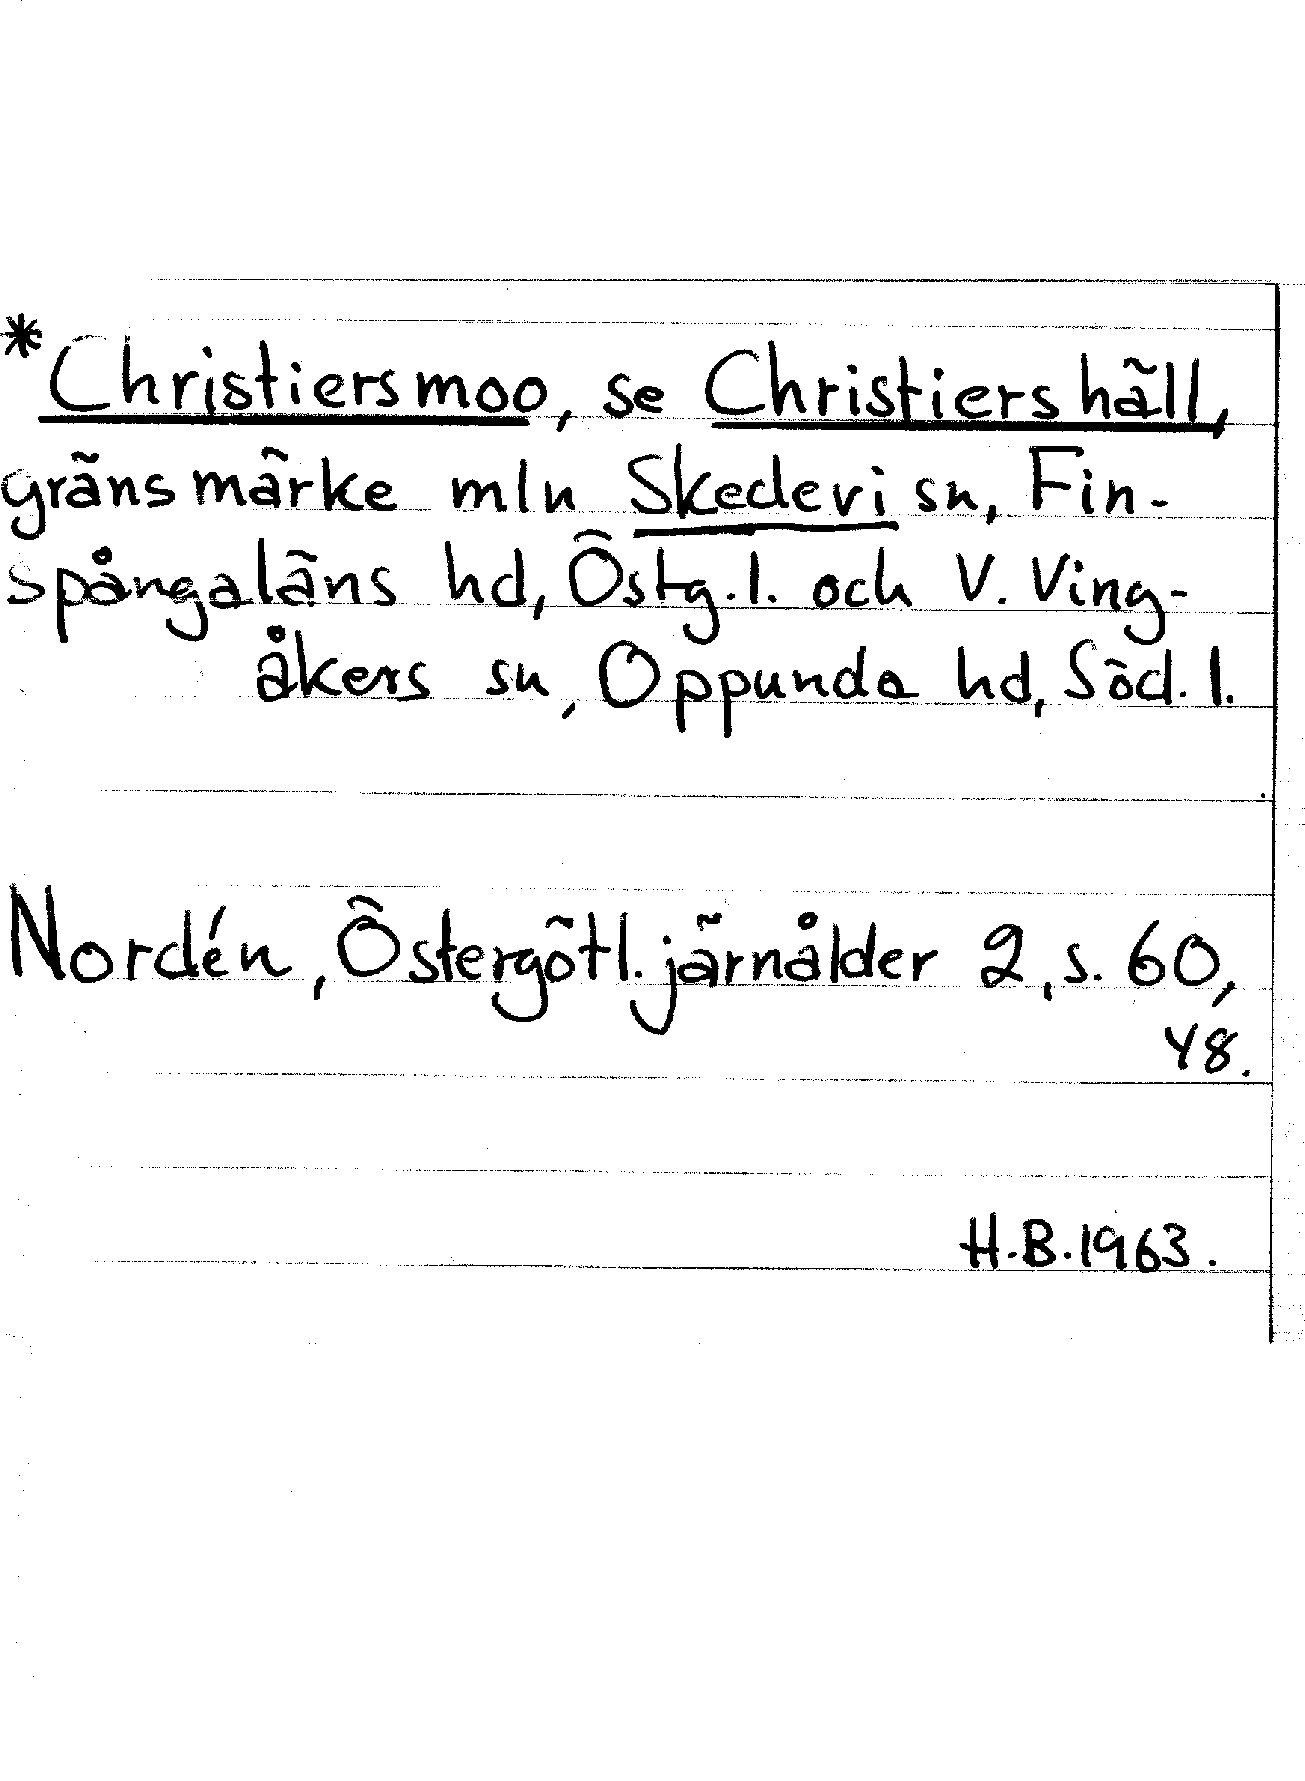 *Christiersmoo, se Christiershäll,
gränsmärke mln Skedevi sn, Fin-
spångaläns hd, Östg.l. och V. Ving-
åkers sn, Oppunda hd, Söd. l.
Nordén, Östergötl. järnålder 2, s. 60,
48.
H.B. 1963.